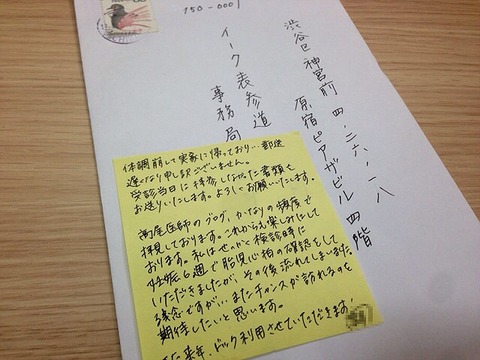 150-0001
渋谷区神宮前 四ノ二六ノ一八
原宿ピアザビル四階
イーク表参道
事務局
体調崩して実家に帰っており…郵送
遅くなり申し訳ございません。
受診当日に持参しなかった書類を
お送りいたします。よろしくお願いいたします。
高尾医師のブログ、かなりの頻度で
拝見しております。これからも楽しみにして
おります。私はせっかく検診時に
妊娠6週で胎児心拍の確認をして
いただきましたが、その後流れてしまいました。
残念ですが…またチャンスが訪れるのを
期待したいと思います。
また来年、ドック利用させていただきます!